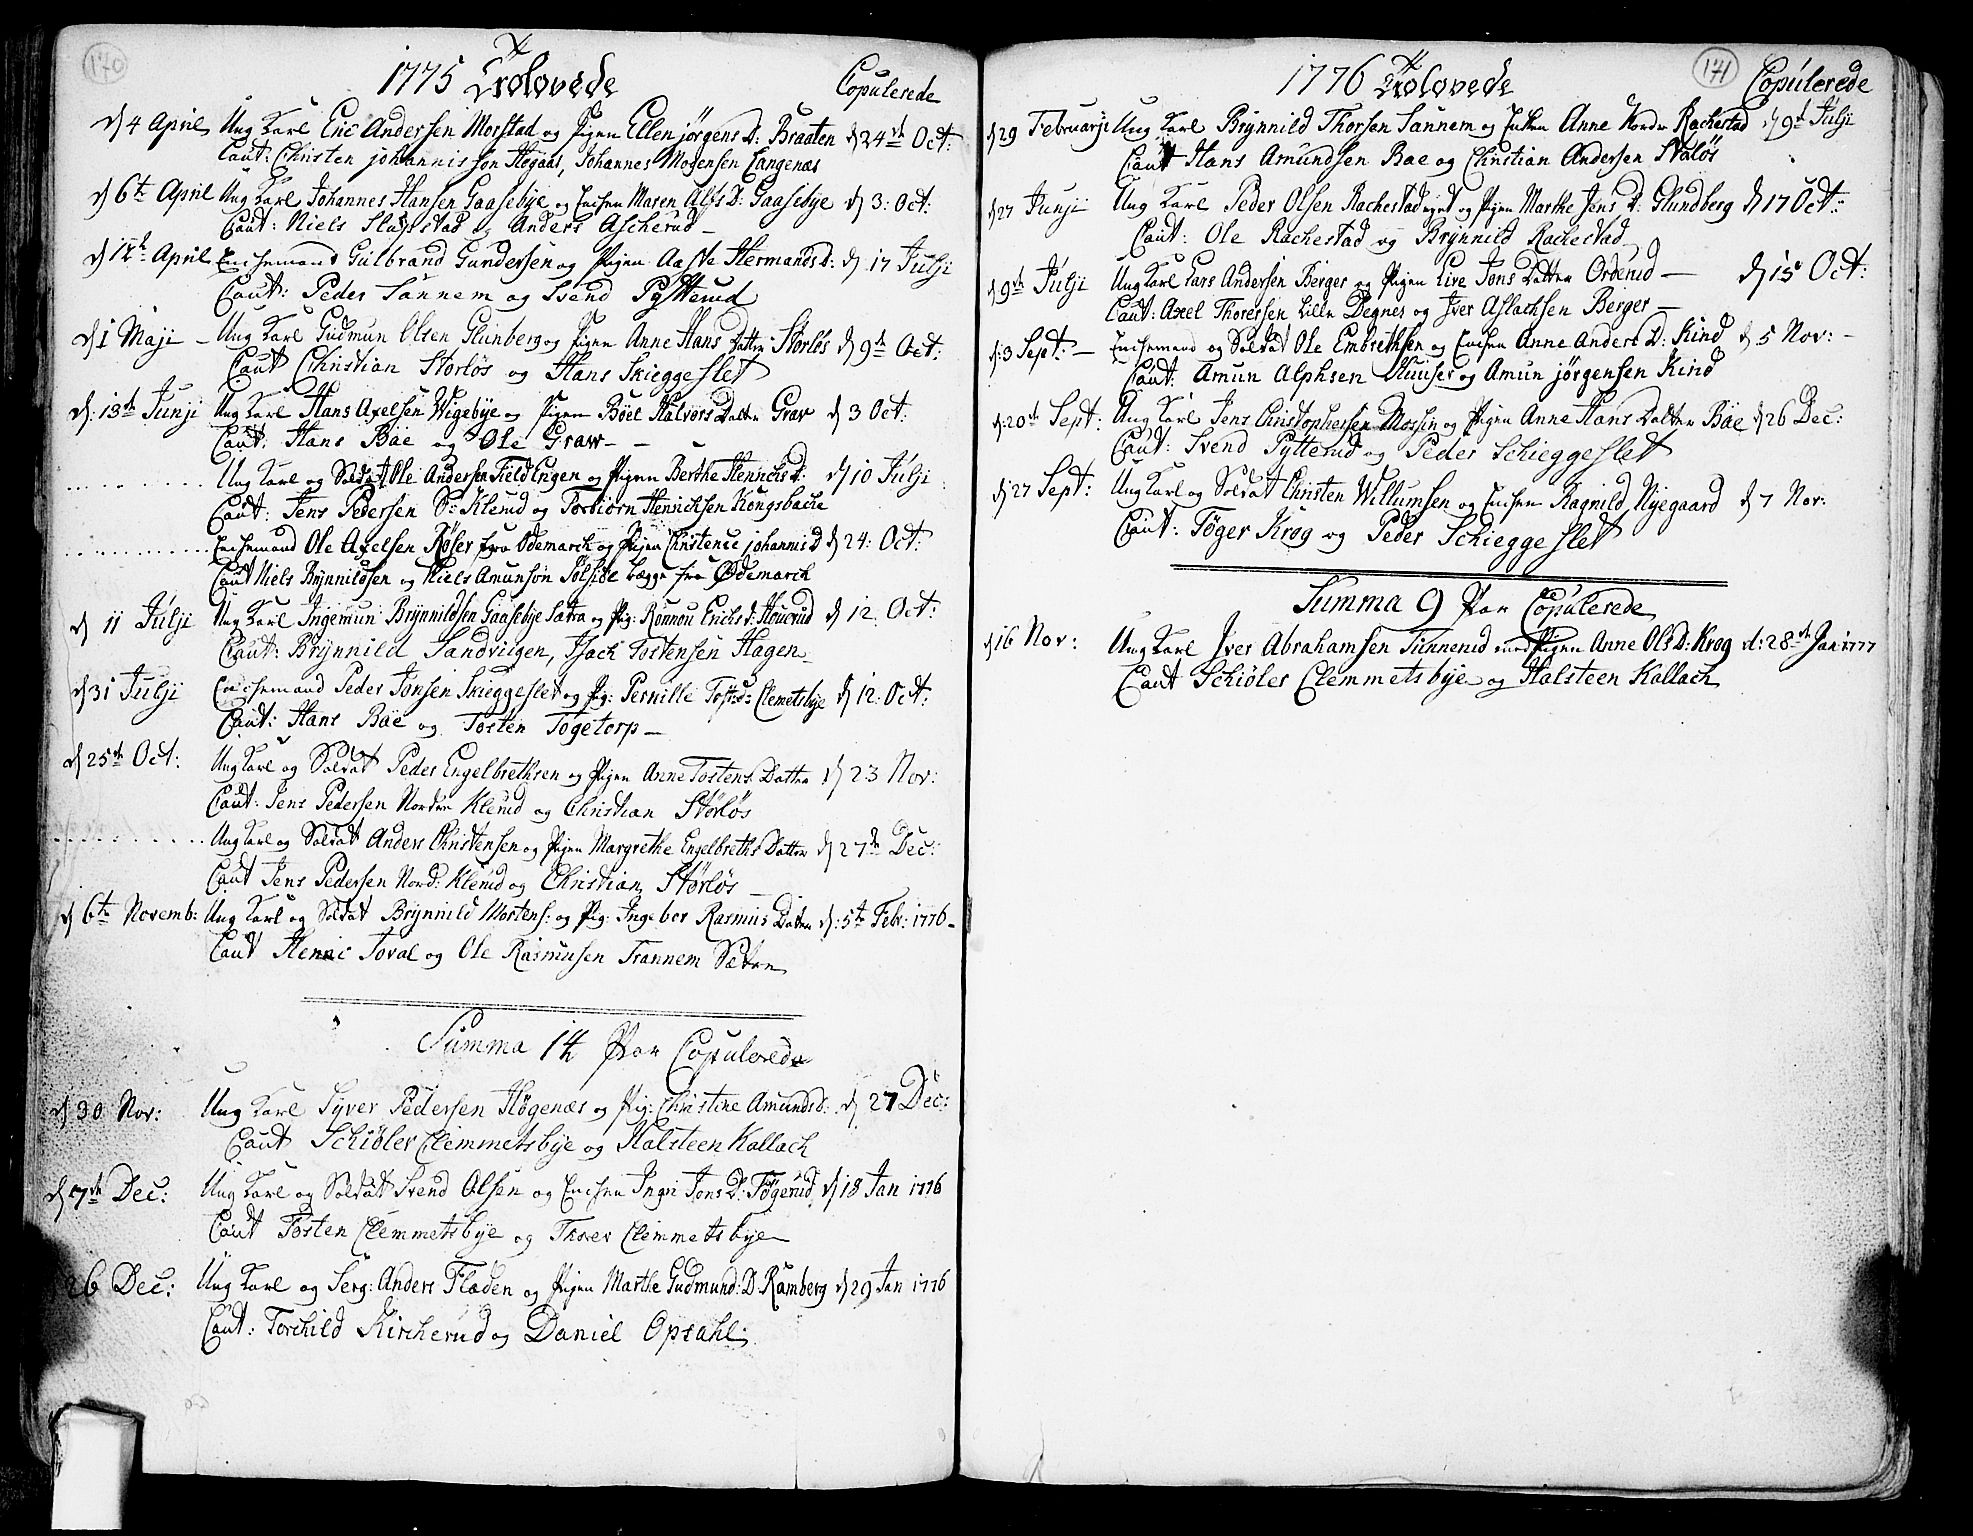 170
1775 Trolovede Copulerede
d 4 April Ung Karl Eric Andersen Morstad og Pigen Ellen jörgens D: Braaten d 24de Oct:
Caut: Christen johannissön Högaas, Johannes Mogensen Langenæs
d 6te April Ung Karl Johannes Hansen Gaasebye og Enchen Maren Alfs D: Gaasebye d 3: Oct:
Caut: Niels Sluxstad og Anders Ascherud
d 12te April Enchemand Gulbrand Gundersen og Pigen Aaste Hermands D: d 17 Julji
Caut: Peder Sannem og Svend Pytterud
d 1 Maji Ung Karl Gudmun Olsen Glunberg og Pigen Anne Hans Datter Störlös d 9de Oct:
Caut Christian Störlös og Hans Skieggeslet
d: 13de Junji Ung Karl Hans Axelsen Wigebye og Pigen Böel Halvors Datter Grav d 3 Oct:
Caut: Hans Bae og Ole Graw
Ung Karl og Soldat Ole Andersen Fieldengen og Pigen Berthe Henrichs D: d 10 Julji
Caut: Jens Pedersen Sr Klerud og Torbiörn Henrichsen Kongsbache
Enchemand Ole Axelsen Röser fra Ödemarck og Pigen Christence johannis D d 24: Oct:
Caut Niels Brynnildsen og Niels Amunsön Sölside begge fra Ödemarck
d 11 Julji Ung Karl Ingemun Brynnildsen Gaasebye Sætra og Pig: Rönnou Erichs d: Houerud d 12: Oct:
Caut: Brynnild Sandviigen, Isach Tostensen Hagen
d 31 Julji Enchemand Peder Jonsen Skieggeslet og Pig: Pernille Tostens: Clemetsbye d 12: Oct:
Caut: Hans Bae og Tosten Togetorp
d 25de Oct: Ung Karl og Soldat Peder Engelbrethsen og Pigen Anne Tostens Datter d 23 Nov:
Caut: Jens Pedersen Nordre Klerud og Christian Störlös
Ung Karl og Soldat Anders Christensen og Pigen Margrethe Engelbreths Datter d 27de Dec:
Caut Jens Pedersen Nord: Klerud og Christian Störlös
d 6te Novemb: Ung Karl og Soldat Brynnild Mortens: og Pig: Ingebor Rasmus Datter d: 5te Febr: 1776
Caut Henric Toval og Ole Rasmusen Trannem Sætre
Summa 14 Par Copulerede
d 30 Nov: Ung Karl Syver Pedersen Högenæs og Pig: Christine Amunds d: d 27 Dec:
Caut Schiöler Clemmetsbye og Halsteen Kallach
d 7de Dec: Ung Karl og Soldat Svend Olsen og Enchen Ingri Jons D: Togerud d 18 Jan 1776
Caut Tosten Clemmetsbye og Thorer Clemmetsbye
26 Dec: Ung Karl og Serg: Anders Fladen og Pigen Marthe Gudmund: D: Ramberg d 29 Jan 1776
Caut: Torchild Kircherud og Daniel Opsahl
171
1776 Trolovede Copulerede
d 29 Februarji Ung Karl Brynnild Thorsen Sannem og Enken Anne Nordre Rachestad d 9de Julji
Caut Hans Amundsen Bae og Christian Andersen Stölös
d 27 Junji Ung Karl Peder Olsen Rachestad eyet og Pigen Marthe Jens D: Glundberg d 17 Oct:
Caut: Ole Rachestad og Brynnild Rachestad
d 9de Julji Ung Karl Lars Andersen Berger og Pigen Live Jons Datter Orderud d 15 Oct:
Caut: Axel Thoressen Lille Degnes og Iver Aslachsen Berger
d: 3 Sept: Enchemand og Soldat Ole Embrethsen og Enchen Anne Anders D: Kind d 5 Nov:
Caut: Amun Alphsen Huuser og Amun jörgensen Kind
d: 20de Sept: Ung Karl Jens Christophersen Mossin og Pigen Anne Hans Datter Bae d 26 Dec:
Caut: Svend Pytterud og Peder Schieggeslet
d 27 Sept: Ung Karl og Soldat Christen Willumsen og Enchen Ragnild Nyegaard d 7 Nov:
Caut: Töger Krog og Peder Schieggeslet
Summa 9 Par Copulerede
d 16 Nov: Ung Karl Iver Abrahamsen Tunnerud med Pigen Anne Ols D: Krog d: 28de Jan: 1777
Caut Schiöler Clemmetsbye og Halsteen Kallach